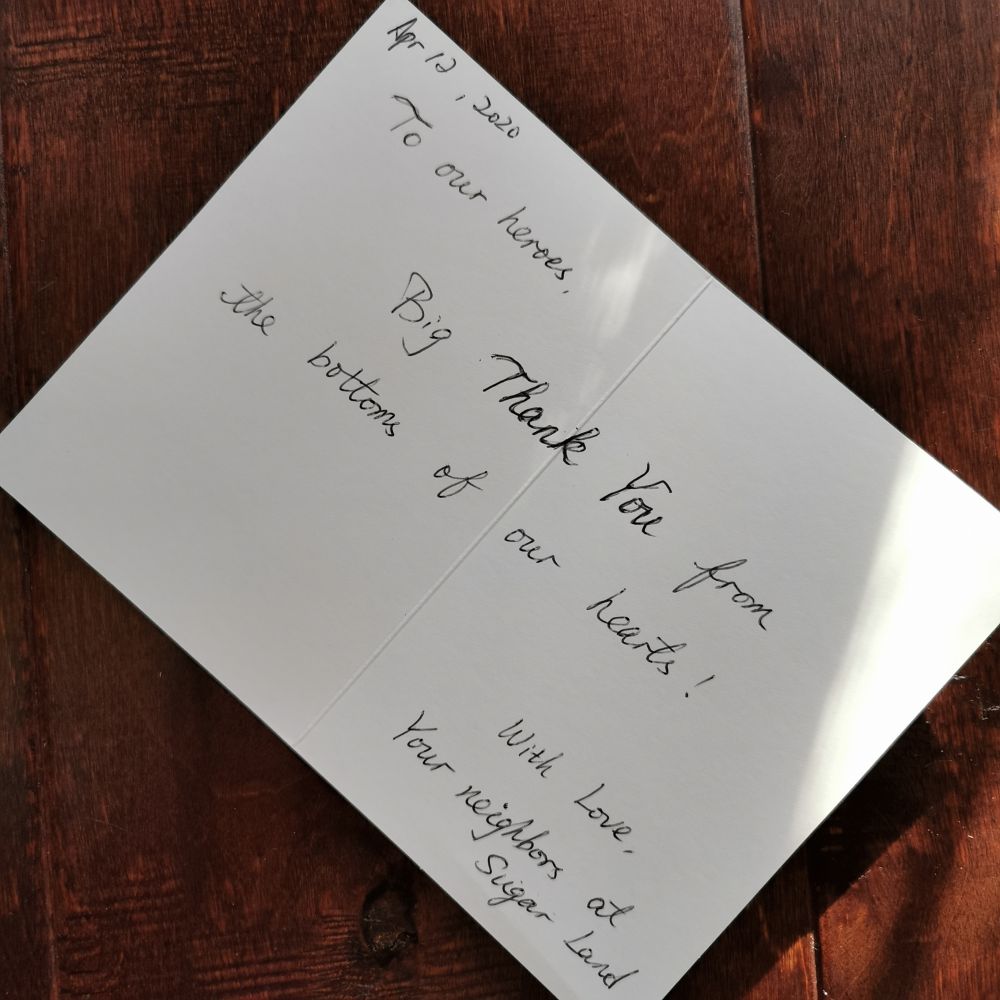 Apr 12, 2020
To our heroes,
Big Thank You from
the bottoms of our hearts!
With Love,
Your neighbors at
Sugar Land